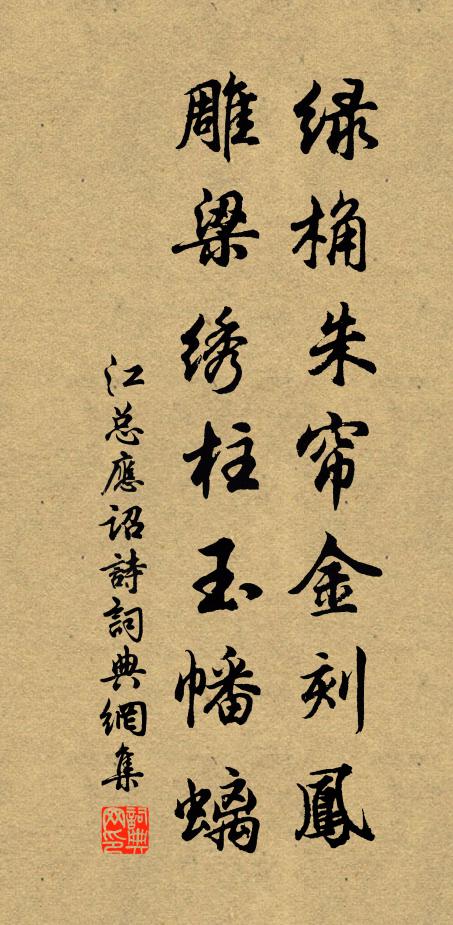 绿桷朱帘金刻鳳
雕梁绣柱玉幡螭
江总應诏詩詞典網集
詞典网印